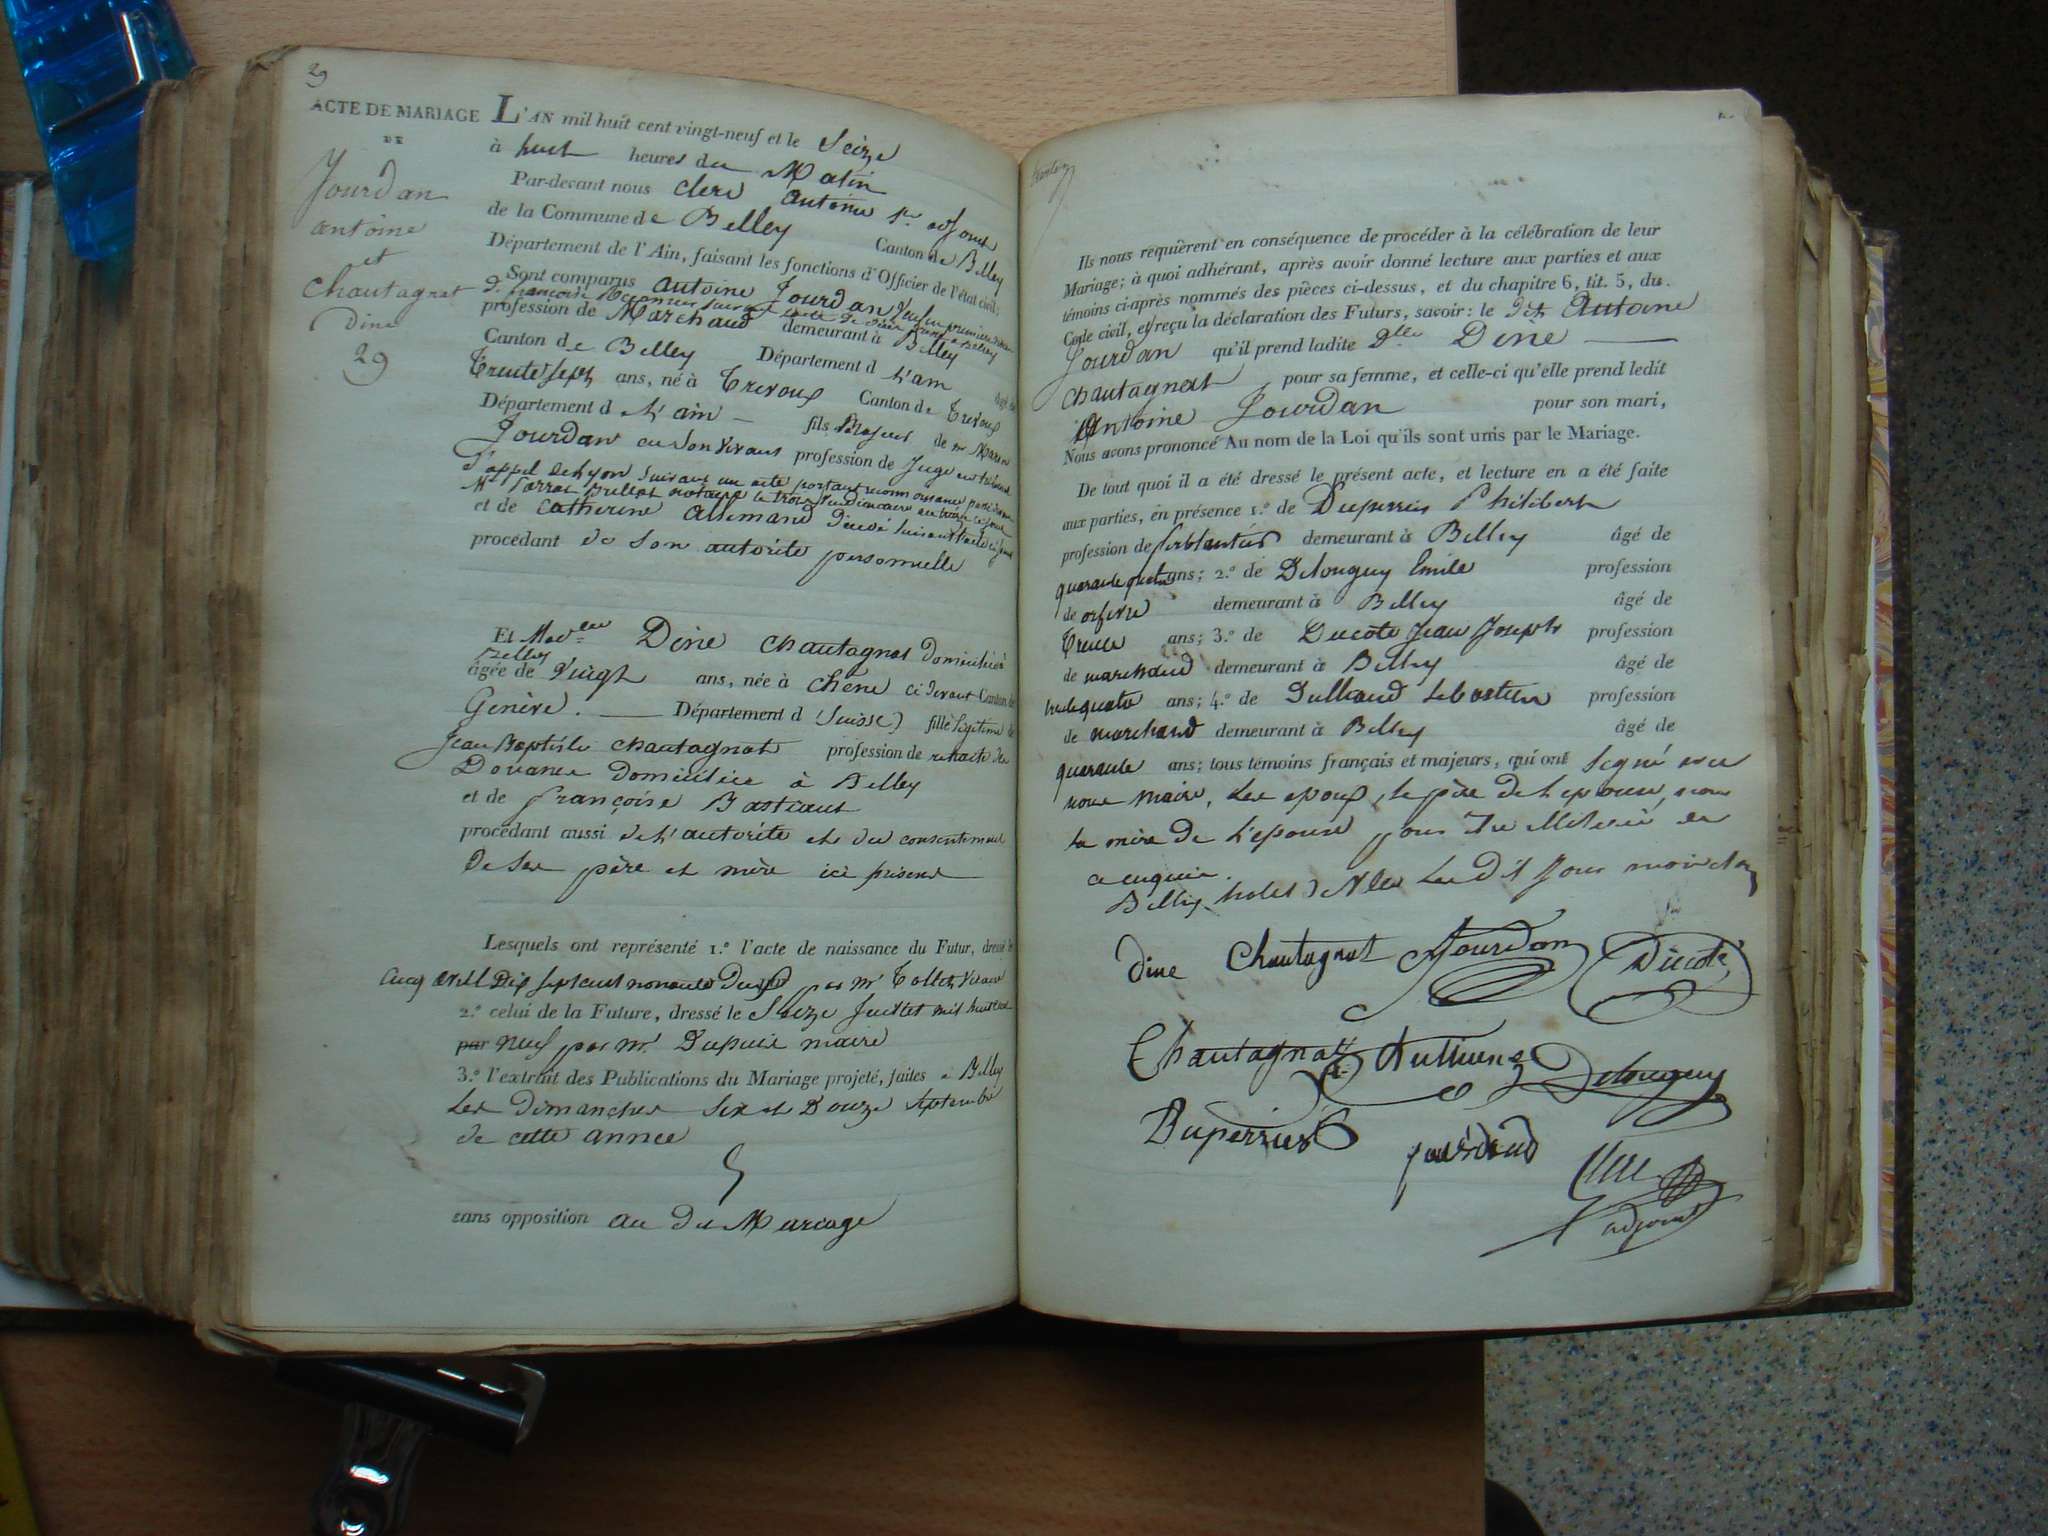 29
ACTE DE MARIAGE
DE
Jourdan
antoine
et
Chautagnat
Dine
29
L'AN mil huit cent vingt-neuf et le Seize
à huit heures du Matin
Par-devant nous Clerc Antoine 1er adjoint
de la Commune de Belley Canton de Belley
Département de l'Ain, faisant les fonctions d'Officier de l'état civil;
Sont comparus Antoine Jourdan
profession de Marchand demeurant à Belley
Canton de Belley Département d L'ain âgé de
Trente Sept ans, né à Trevoux Canton de Trevoux
Département d L'ain fils Majeur de
Jourdan en son vivant profession de Juge
d'appel de Lyon suivant un acte portant reconnoissance
et de Catherine Allemand
procédant de Son autorité personnelle
Et Madlle Dine Chautagnat domiciliée à
Belley
âgée de Vingt ans, née à Chêne ci devant Canton de
Genève. Département d (Suisse) fille légitime de
Jean Baptiste Chautagnat profession de retraité des
Douanes domicilié à Belley
et de françoise Bastiant
procédant aussi de L'autorité et du consentement
de Ses père et mère ici présens
Lesquels ont représenté 1.º l'acte de naissance du Futur, dressé le
Cinq avril Dix Sept cent nonante Deux par mr Tollet Vicaire
2.º celui de la Future, dressé le Seize Juillet mil huit cent
par neuf par mr. Dupuis maire
3.º l'extrait des Publications du Mariage projeté, faites à Belley
Les Dimanches Six et Douze Septembre
de cette année
sans opposition au dit Mariage
Ils nous requièrent en conséquence de procéder à la célébration de leur
Mariage; à quoi adhérant, après avoir donné lecture aux parties et aux
témoins ci-après nommés des pièces ci-dessus, et du chapitre 6, tit. 5, du
Code civil, et reçu la déclaration des Futurs, savoir: le dit Antoine
Jourdan qu'il prend ladite Dlle Dine
Chautagnat pour sa femme, et celle-ci qu'elle prend ledit
Antoine Jourdan pour son mari,
Nous avons prononcé Au nom de la Loi qu'ils sont unis par le Mariage.
De tout quoi il a été dressé le présent acte, et lecture en a été faite
aux parties, en présence 1.º de Duperrier Philibert
profession de ferblantier demeurant à Belley âgé de
quarante quatre ans; 2.º de Delonguy Emile profession
de orfevre demeurant à Belley âgé de
Trente ans; 3.º de Ducote Jean Joseph profession
de marchand demeurant à Belley âgé de
trente quatre ans; 4.º de Sebastien profession
de marchand demeurant à Belley âgé de
quarante ans; tous témoins français et majeurs, qui ont Signé avec
nous maire, Les epoux, le père de L'epouse, non
la mère de L'epouse pour
ce enquise.
Belley Les Dit Jour mois et an
Dine Chautagnat AJourdan Ducote
Chautagnat Delonguy
Duperrier Clerc
adjoint